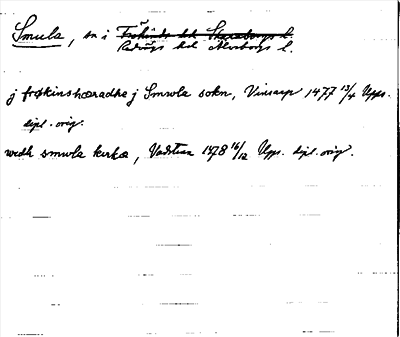 Smula, sn i Frökinds hd Skaraborgs l.
Redvägs hd Älvsborgs l.
j frøkinshæradhe j Smwla sokn, Vinsarp 1477 13/4 Upps.
dipl. orig.
wedh smwla kirkæ, Vadstena 1478 16/12 Upps. dipl. orig.